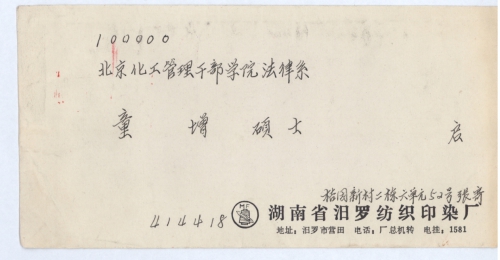 100000
北京化工管理干部学院法律系
童增硕士 启
桔园新村二栋六单元52号张寄
湖南省汨罗纺织印染厂
414418
地址：汨罗市营田 电话：厂总机转 电挂：1581